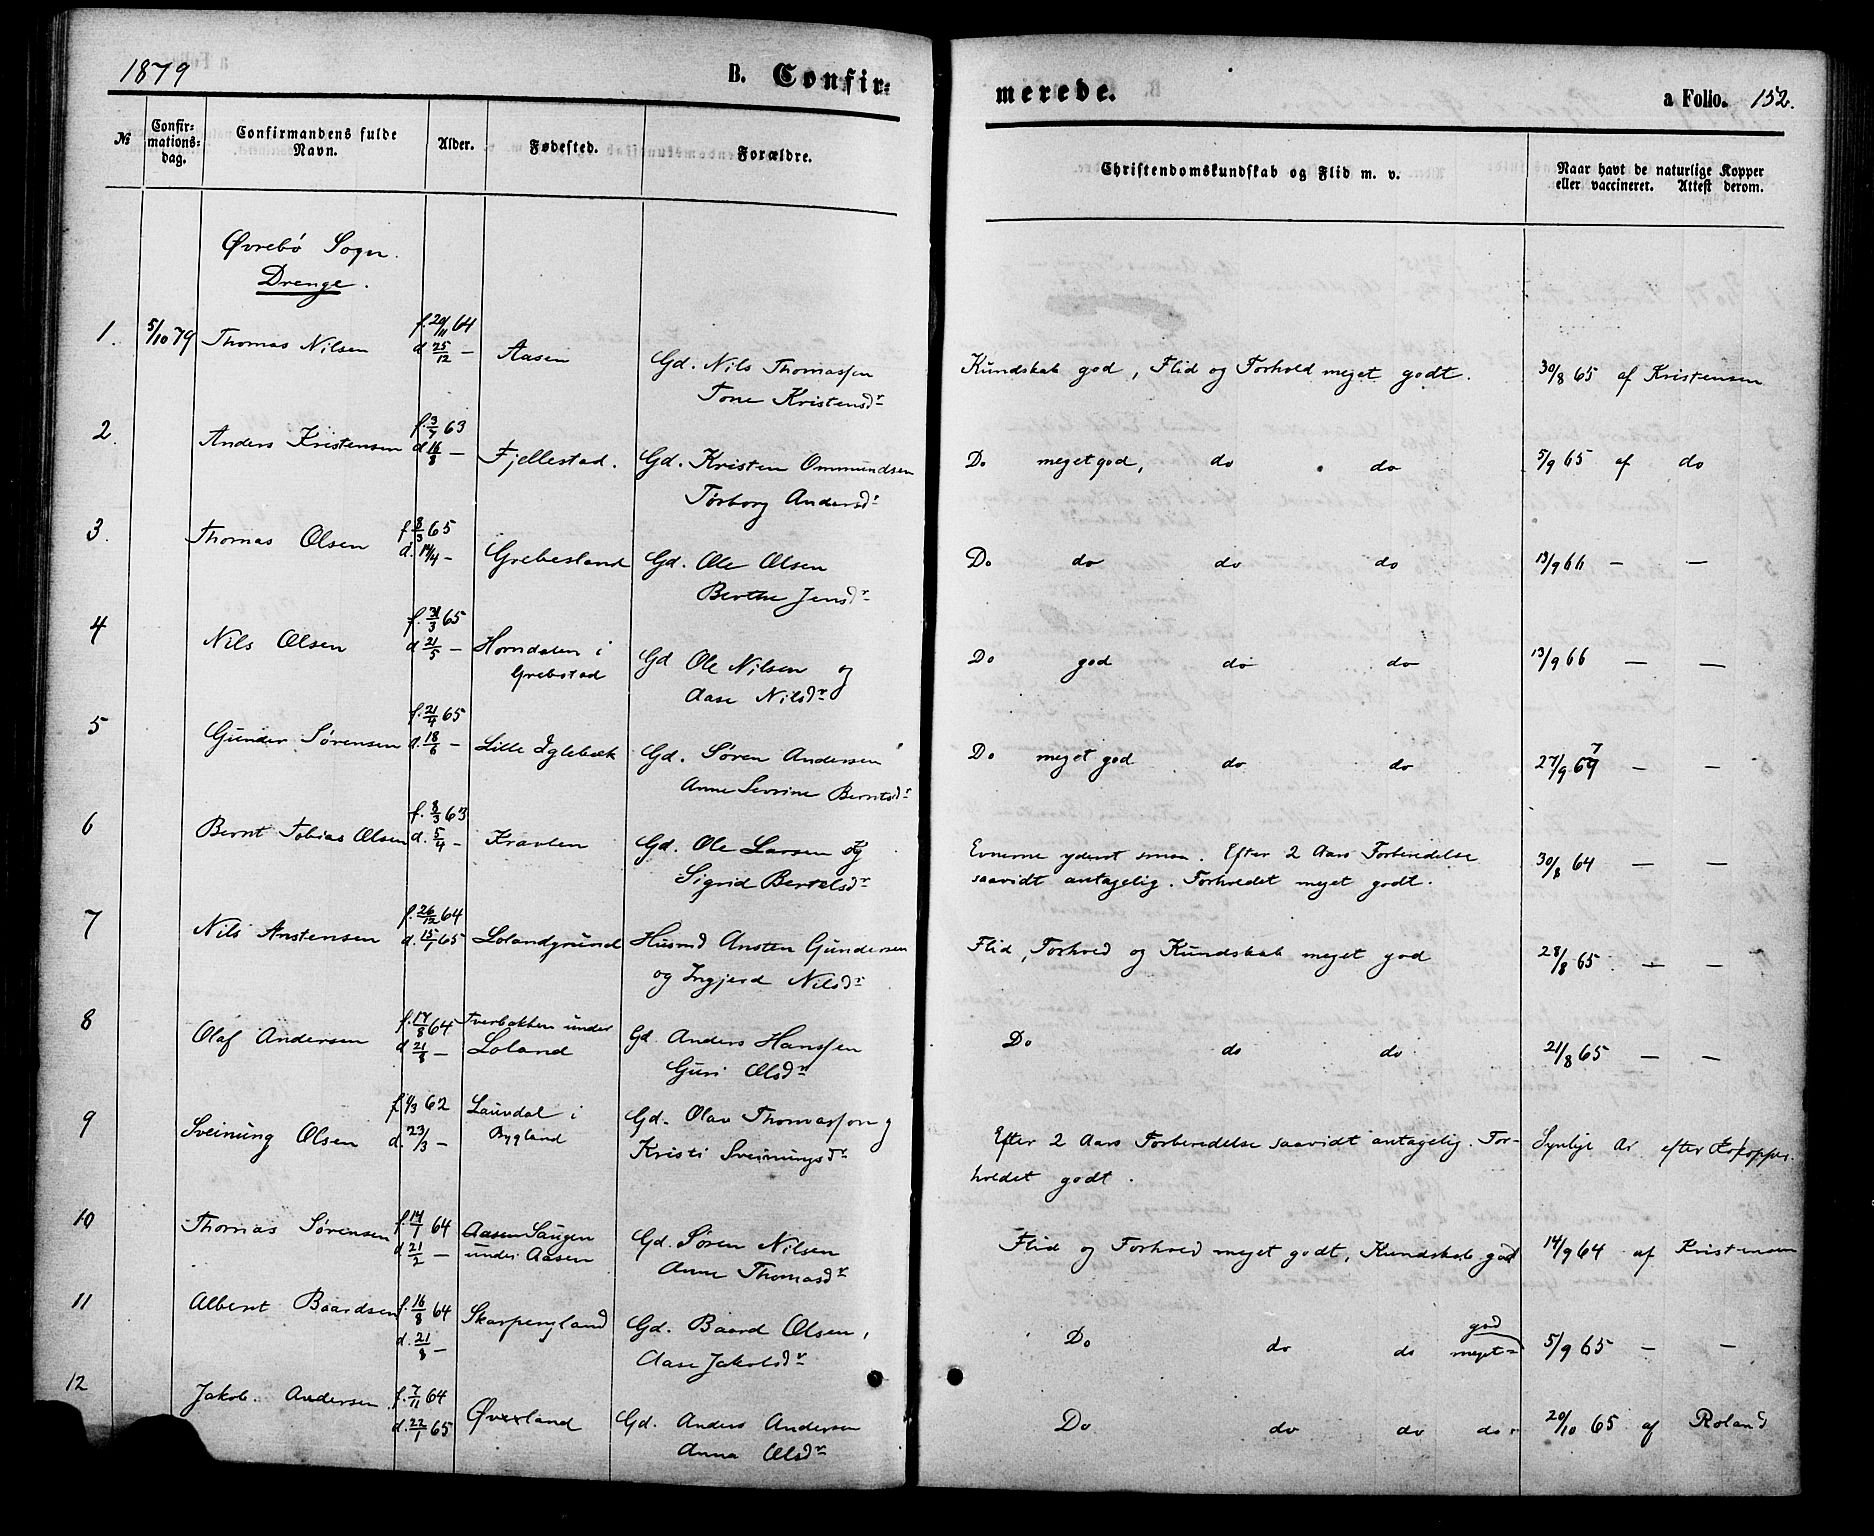 1879 B. Confir=
merede. a Folio. 152.
№ Confir=mations=dag. Confirmandens fulde Navn. Alder. Fødested. Forældre. Christendomskundskab og Flid m. v. Naar havt de naturlige Kopper eller vaccineret. Attest derom.
Øvrebø Sogn.
Drenge.
1. 5/10 79 Thomas Nilsen f. 20/11 64 d 25/12 — Aasen Gd. Nils Thomassen Kundskab god, Flid og Forhold meget godt. 30/8 65 af Kristensen
Tone Kristensdr
2. Anders Kristensen f. 3/7 63 d 16/8 — Fjellestad. Gd. Kristen Ommundsen Do meget god, do do 5/9 65 af do
Torborg Andersdr
3. Thomas Olsen f. 8/3 65 d. 14/4 — Grebesland Gd. Ole Olsen Do do do do 13/9 66 — —
Berthe Jensdr
4 Nils Olsen f. 31/3 65 d 21/5 — Homdalen i Gd Ole Nilsen og Do god do do 13/9 66 — —
Grebstad Aase Nilsdr
5 Gunder Sørensen f. 21/4 65 d. 18/6 — Lille Iglebæk Gd. Søren Andersen Do meget god do do 27/9 67 — —
Anne Sevrine Berntsdr
6 Bernt Tobias Olsen f. 8/3 63 d. 5/4 — Kravlen Gd. Ole Larsen og Evnerne yderst smaa. Efter 2 Aars Forberedelse 30/8 64 — —
Sigrid Bertelsdr saavidt antagelig. Forholdet meget godt.
7 Nils Anstensen f. 26/12 64 d. 15/1 65 Lolandgrund Husmd Ansten Gundersen Flid, Forhold og Kundskab meget god 28/8 65 — —
og Ingjerd Nilsdr
8 Olaf Andersen f. 17/8 64 d 21/8 — Tverbakken under Gd. Anders Hanssen Do do do 21/8 65 — —
Loland Guri Olsdr
9 Sveinung Olsen f. 1/3 62 d. 23/3 — Lauvdal i Gd. Olav Thomasson og Efter 2 Aars Forberedelse saavidt antagelig. For- Synlige Ar efter Kopper.
Bygland Kristi Sveinungsdr holdet godt.
10 Thomas Sørensen f. 14/1 64 d 21/2 — Aasen Saugen Gd. Søren Nilsen Flid og Forhold meget godt, Kundskab god 14/9 64 af Kristensen
under Aasen Anne Thomasdr
11 Albert Baardsen f. 16/8 64 d. 21/8 — Skarpengland Gd. Baard Olsen, Do do do meget god 5/9 65 — —
Aase Jakobsdr
12 Jakob Andersen f. 7/11 64 d. 22/1 65 Øvreland Gd. Anders Andersen Do do do do 20/10 65 af Roland
Anna Olsdr